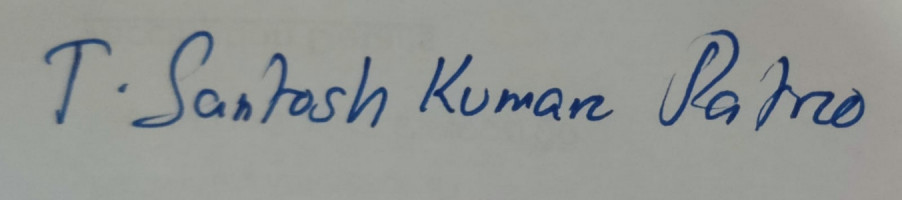 T. Santosh Kumar Patro